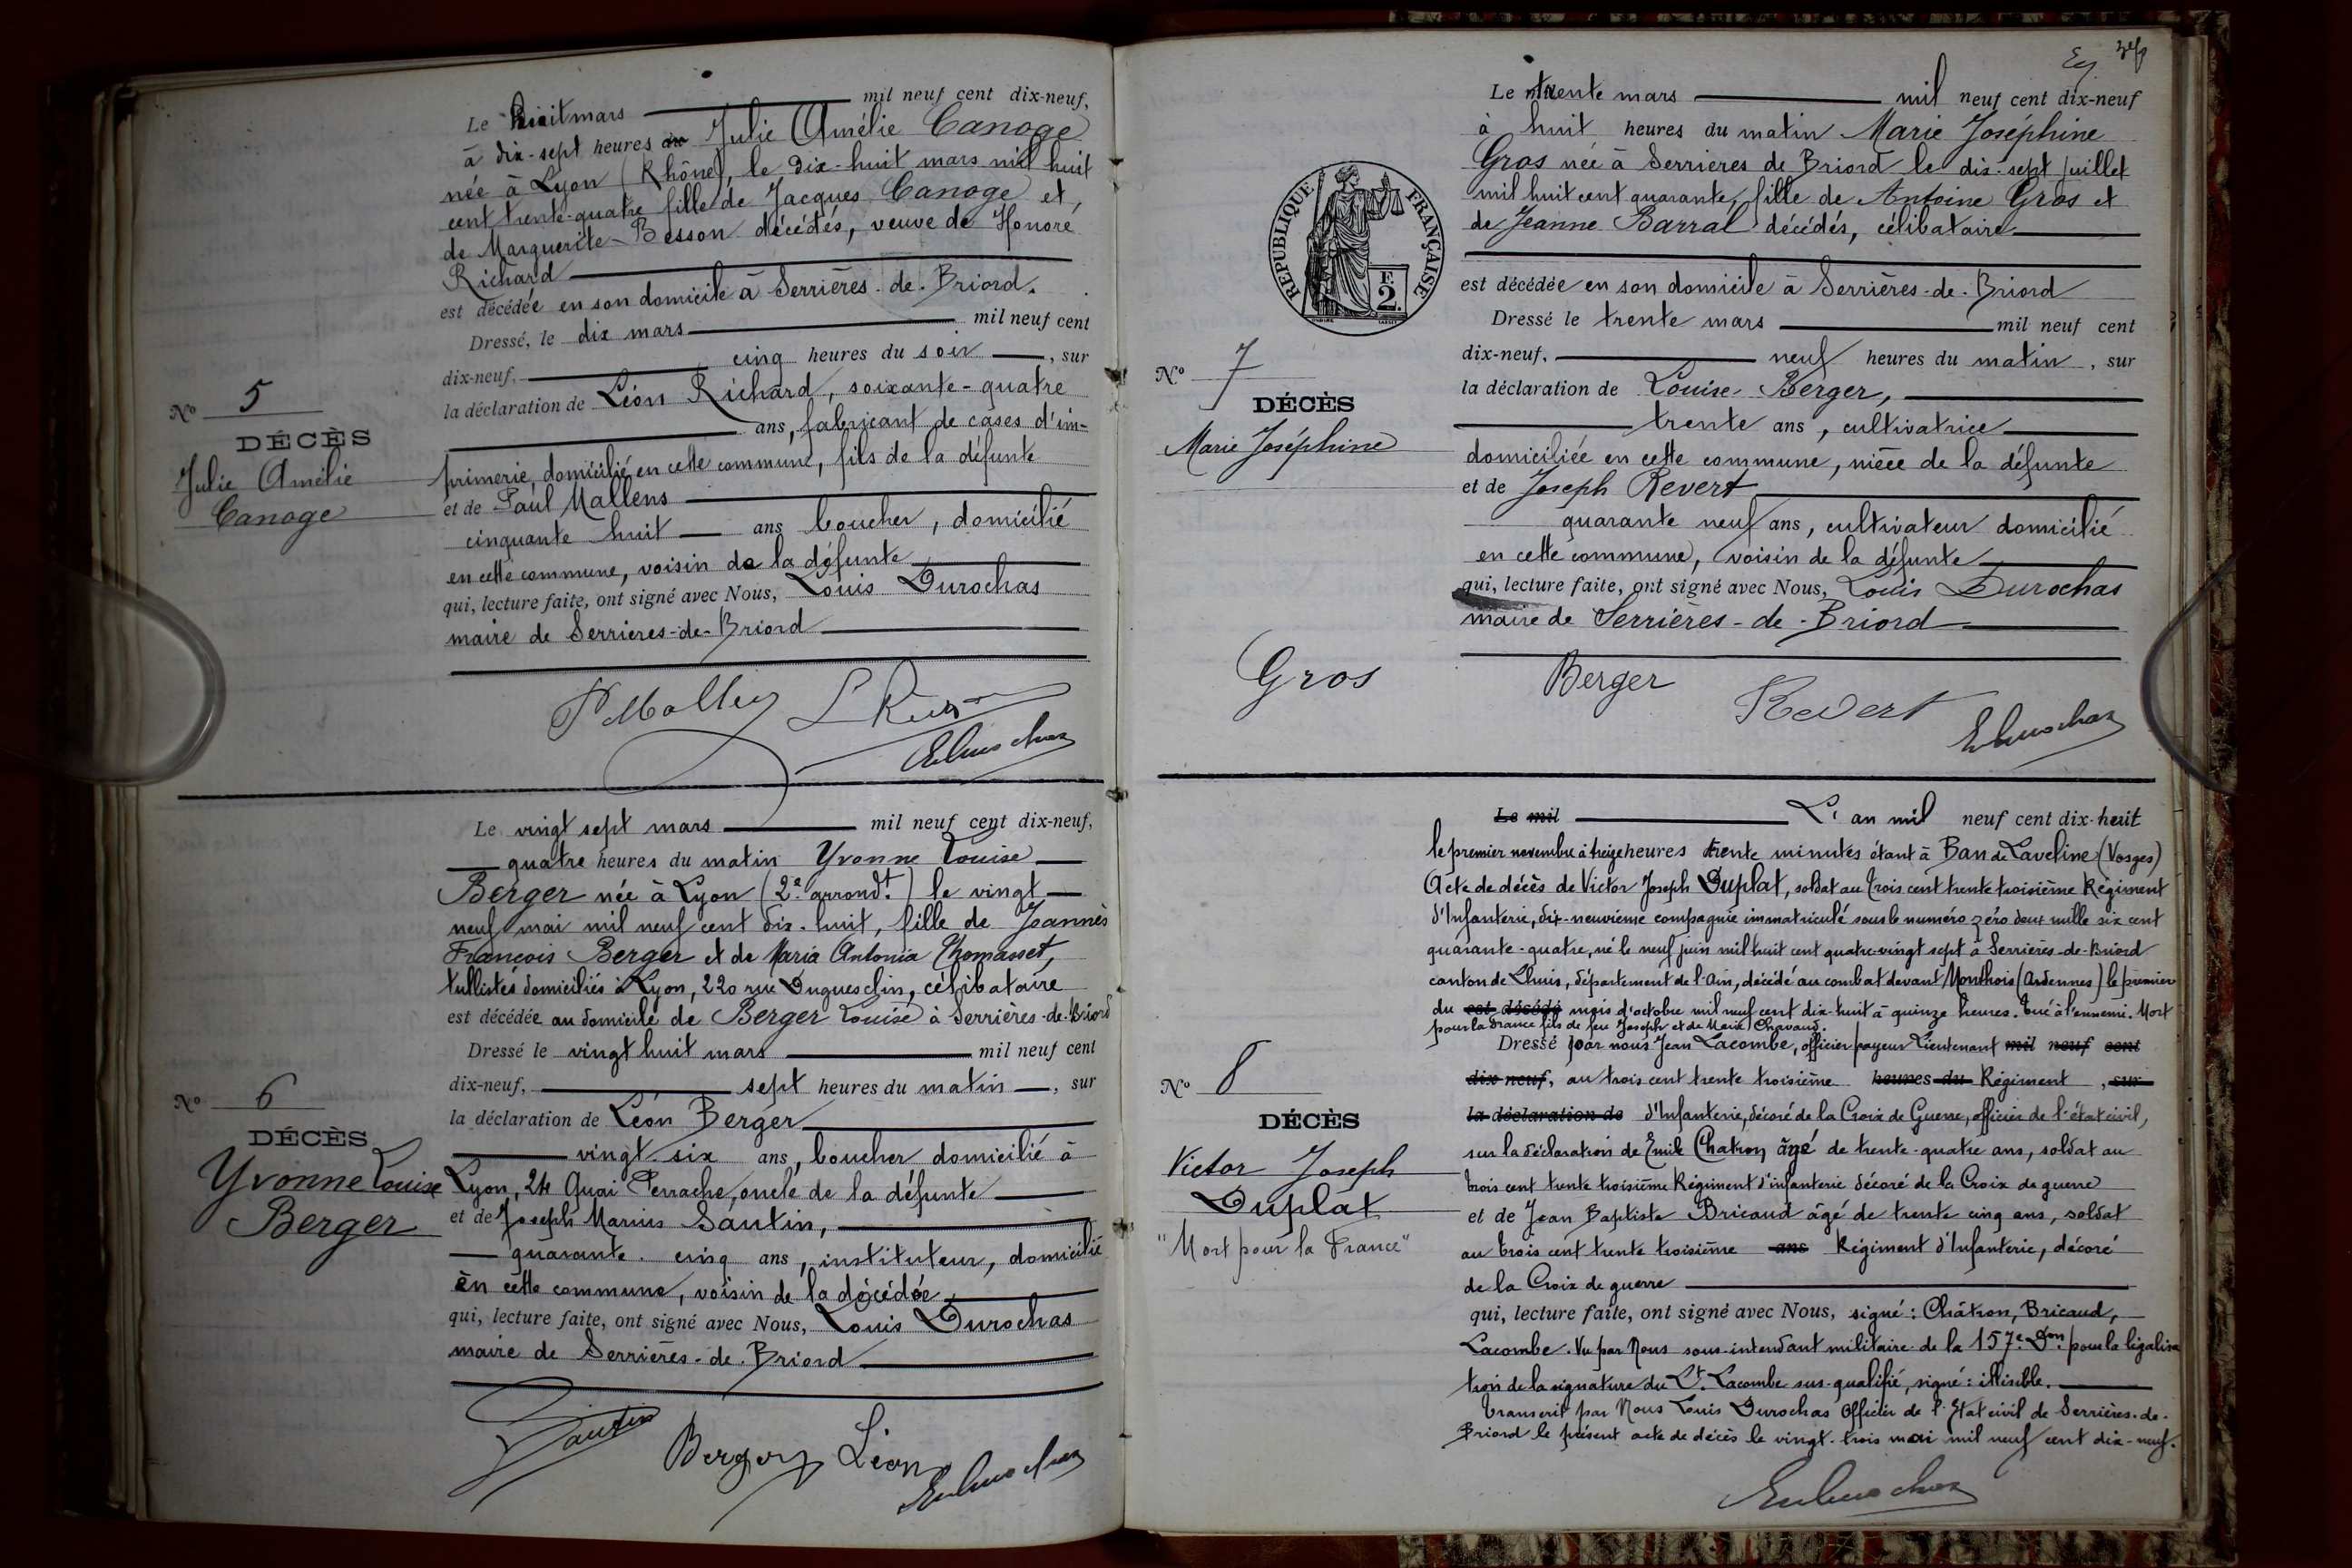 Le huit mars mil neuf cent dix-neuf,
à dix-sept heures du Julie Amélie Canoge
née à Lyon (Rhône), le dix-huit mars mil huit
cent trente-quatre fille de Jacques Canoge et,
de Marguerite Besson décédés, veuve de Honoré
Richard
est décédée en son domicile à Serrières-de-Briord.
Dressé, le dix mars mil neuf cent
dix-neuf, cinq heures du soir, sur
la déclaration de Léon Richard, soixante-quatre
ans, fabricant de cases d'im=
primerie, domicilié en cette commune, fils de la défunte
et de Paul Mallens
cinquante huit ans boucher, domicilié
en cette commune, voisin de la défunte
qui, lecture faite, ont signé avec Nous, Louis Durochas
maire de Serrières-de-Briord
N° 5
DÉCÈS
Julie Amélie
Canoge
Le vingt sept mars mil neuf cent dix-neuf,
quatre heures du matin Yvonne Louise
Berger née à Lyon (2e arrondt.) le vingt
neuf mai mil neuf cent dix-huit, fille de Joannès
François Berger et de Maria Antonia Thomasset,
tullistes domiciliés à Lyon, 220 rue Duguesclin, célibataire
est décédée au domicile de Berger Louise à Serrières-de-Briord
Dressé le vingt huit mars mil neuf cent
dix-neuf, sept heures du matin, sur
la déclaration de Léon Berger
vingt-six ans, boucher domicilié à
Lyon, 24 Quai Perrache, oncle de la défunte
et de Joseph Marius Sautin,
quarante-cinq ans, instituteur, domicilié
en cette commune, voisin de la décédée
qui, lecture faite, ont signé avec Nous, Louis Durochas
maire de Serrières-de-Briord
N° 6
DÉCÈS
Yvonne Louise
Berger
Sautin
Berger Léon
Le trente mars mil neuf cent dix-neuf
à huit heures du matin Marie Joséphine
Gros née à Serrieres de Briord le dix-sept juillet
mil huit cent quarante, fille de Antoine Gros et
de Jeanne Barral décédés, célibataire
est décédée en son domicile à Serrières-de-Briord
Dressé le trente mars mil neuf cent
dix-neuf, neuf heures du matin, sur
la déclaration de Louise Berger,
trente ans, cultivatrice
domiciliée en cette commune, nièce de la défunte
et de Joseph Revert
quarante neuf ans, cultivateur domicilié
en cette commune, voisin de la défunte
qui, lecture faite, ont signé avec Nous, Louis Durochas
maire de Serrières-de-Briord
REPUBLIQUE FRANÇAISE
F.
2.
N° 7
DÉCÈS
Marie Joséphine
Gros
Berger
Revert
Le mil L'an mil neuf cent dix-huit
le premier novembre à treize heures trente minutes étant à Ban de Laveline (Vosges)
Acte de décès de Victor Joseph Duplat, soldat au trois cent trente troisième Régiment
d'Infanterie, dix-neuvième compagnie immatriculé sous le numéro zéro deux mille six cent
quarante-quatre, né le neuf juin mil huit cent quatre-vingt sept à Serrières-de-Briord
canton de Lhuis, département de l'Ain, décédé au combat devant Monthois (Ardennes) le premier
du est décédé mois d'octobre mil neuf cent dix-huit à quinze heures. tué à l'ennemi. Mort
pour la France fils de feu Joseph et de Marie Chavand.
Dressé par nous Jean Lacombe, officier payeur Lieutenant mil neuf cent
dix neuf, au trois cent trente troisième heures du Régiment, sur
la déclaration de d'Infanterie, décoré de la Croix de Guerre, officier de l'état civil,
sur la déclaration de Emile Chatron âgé de trente-quatre ans, soldat au
trois cent trente troisième Régiment d'infanterie décoré de la Croix de guerre
et de Jean Baptiste Bricaud âgé de trente cinq ans, soldat
au trois cent trente troisième ans Régiment d'Infanterie, décoré
de la Croix de guerre
qui, lecture faite, ont signé avec Nous, signé: Châtron, Bricaud,
Lacombe. Vu par Nous sous-intendant militaire de la 157e Don. pour la légalisa
tion de la signature du Lt. Lacombe sus-qualifié, signé: illisible.
Transcrit par Nous Louis Durochas Officier de l'Etat civil de Serrières-de-
Briord le présent acte de décès le vingt-trois mai mil neuf cent dix-neuf.
N° 8
DÉCÈS
Victor Joseph
Duplat
"Mort pour la France"